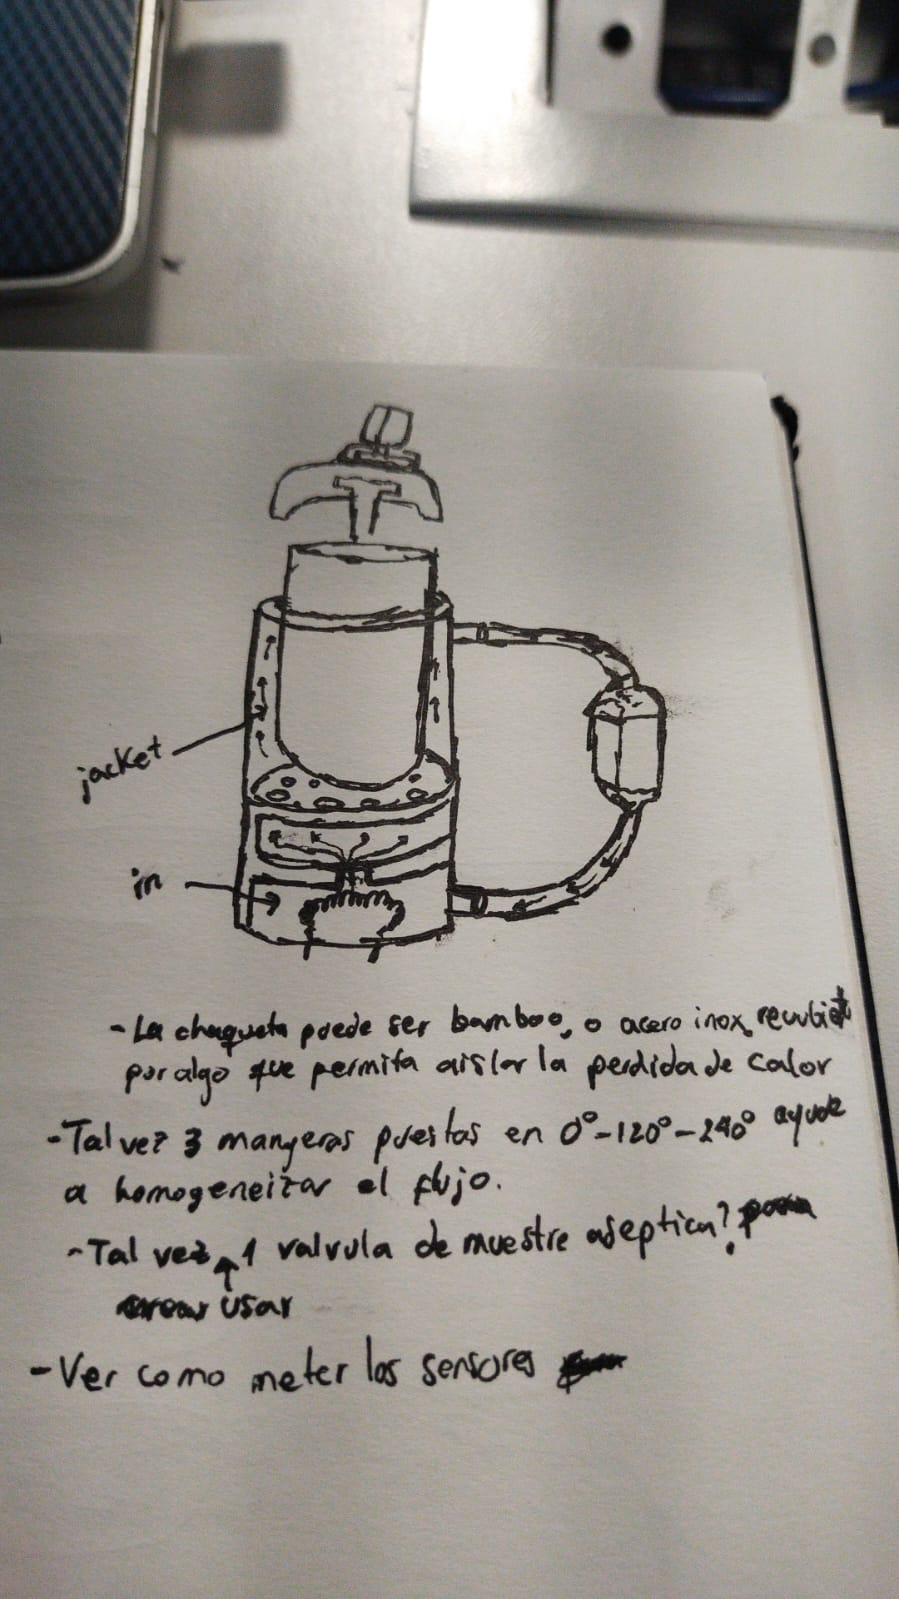 jacket
in
- La chaqueta puede ser bamboo, o acero inox, recubiet
por algo que permita aislar la perdida de calor
- Tal vez 3 mangeras puestas en 0° - 120° - 240° ayude
a homogeneizar el flujo.
- Tal vez 1 valvula de muestre aseptica?
usar
- Ver como meter los sensores